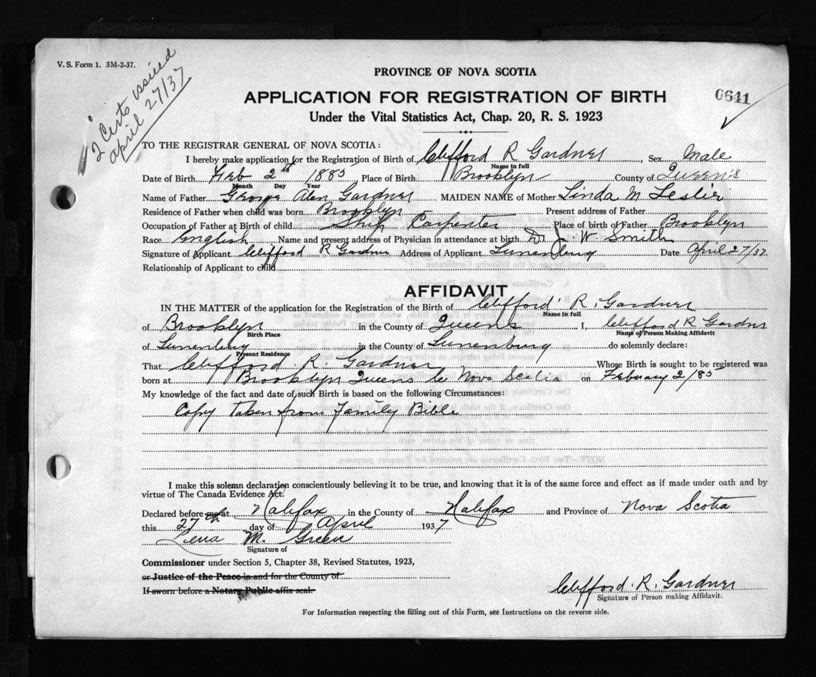 V. S. Form 1. 3M-2-37.
2 Certs issued
April 27/37
PROVINCE OF NOVA SCOTIA
0641
APPLICATION FOR REGISTRATION OF BIRTH
Under the Vital Statistics Act, Chap. 20, R. S. 1923
TO THE REGISTRAR GENERAL OF NOVA SCOTIA:
I hereby make application for the Registration of Birth of Clifford R Gardner, Sex Male
Name in full
Date of Birth Feb 2nd 1885 Place of Birth Brooklyn County of Queens
Month Day Year
Name of Father George Alen Gardner MAIDEN NAME of Mother Linda M Leslie
Residence of Father when child was born Brooklyn Present address of Father
Occupation of Father at Birth of child Ship Carpenter Place of birth of Father Brooklyn
Race English Name and present address of Physician in attendance at birth Dr J. W Smith
Signature of Applicant Clifford R Gardner Address of Applicant Lunenburg Date April 27/37
Relationship of Applicant to child
AFFIDAVIT
IN THE MATTER of the application for the Registration of the Birth of Clifford R. Gardner
Name in full
of Brooklyn in the County of Queens I, Clifford R Gardner
Birth Place Name of Person Making Affidavit
of Lunenburg in the County of Lunenburg do solemnly declare:
Present Residence
That Clifford R. Gardner Whose Birth is sought to be registered was
born at Brooklyn Queens Co Nova Scotia on February 2/85
My knowledge of the fact and date of such Birth is based on the following Circumstances:
Copy taken from Family Bible
I make this solemn declaration conscientiously believing it to be true, and knowing that it is of the same force and effect as if made under oath and by
virtue of The Canada Evidence Act.
Declared before me at Halifax in the County of Halifax and Province of Nova Scotia
this 27th day of April 1937
Lena M. Green
Signature of
Commissioner under Section 5, Chapter 38, Revised Statutes, 1923,
or Justice of the Peace in and for the County of
If sworn before a Notary Public affix seal.
Clifford. R. Gardner
Signature of Person making Affidavit.
For Information respecting the filling out of this Form, see Instructions on the reverse side.